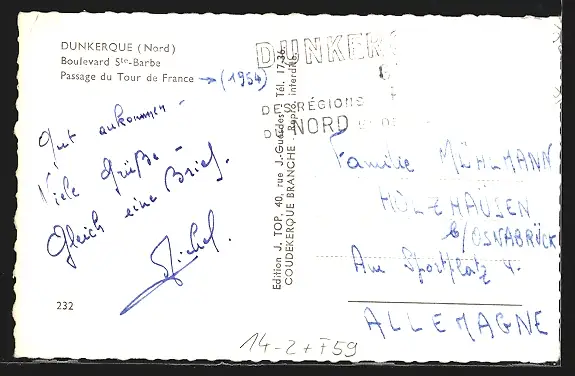 DUNKERQUE (Nord)
Boulevard Ste-Barbe
Passage du Tour de France → (1954)
Gut ankommen -
Viele Grüße -
Gleich eine Brief.
Michel.
232
Edition J. TOP, 40, rue J.-Guesdes - Tél. 17-36
COUDEKERQUE BRANCHE - Repro. interdite.
DUNKER
DES RÉGIONS
DU NORD
Familie MÜHLMANN
HOLZHAUSEN
b/OSNABRÜCK
Am Sportplatz 4.
ALLEMAGNE
14-2+F59